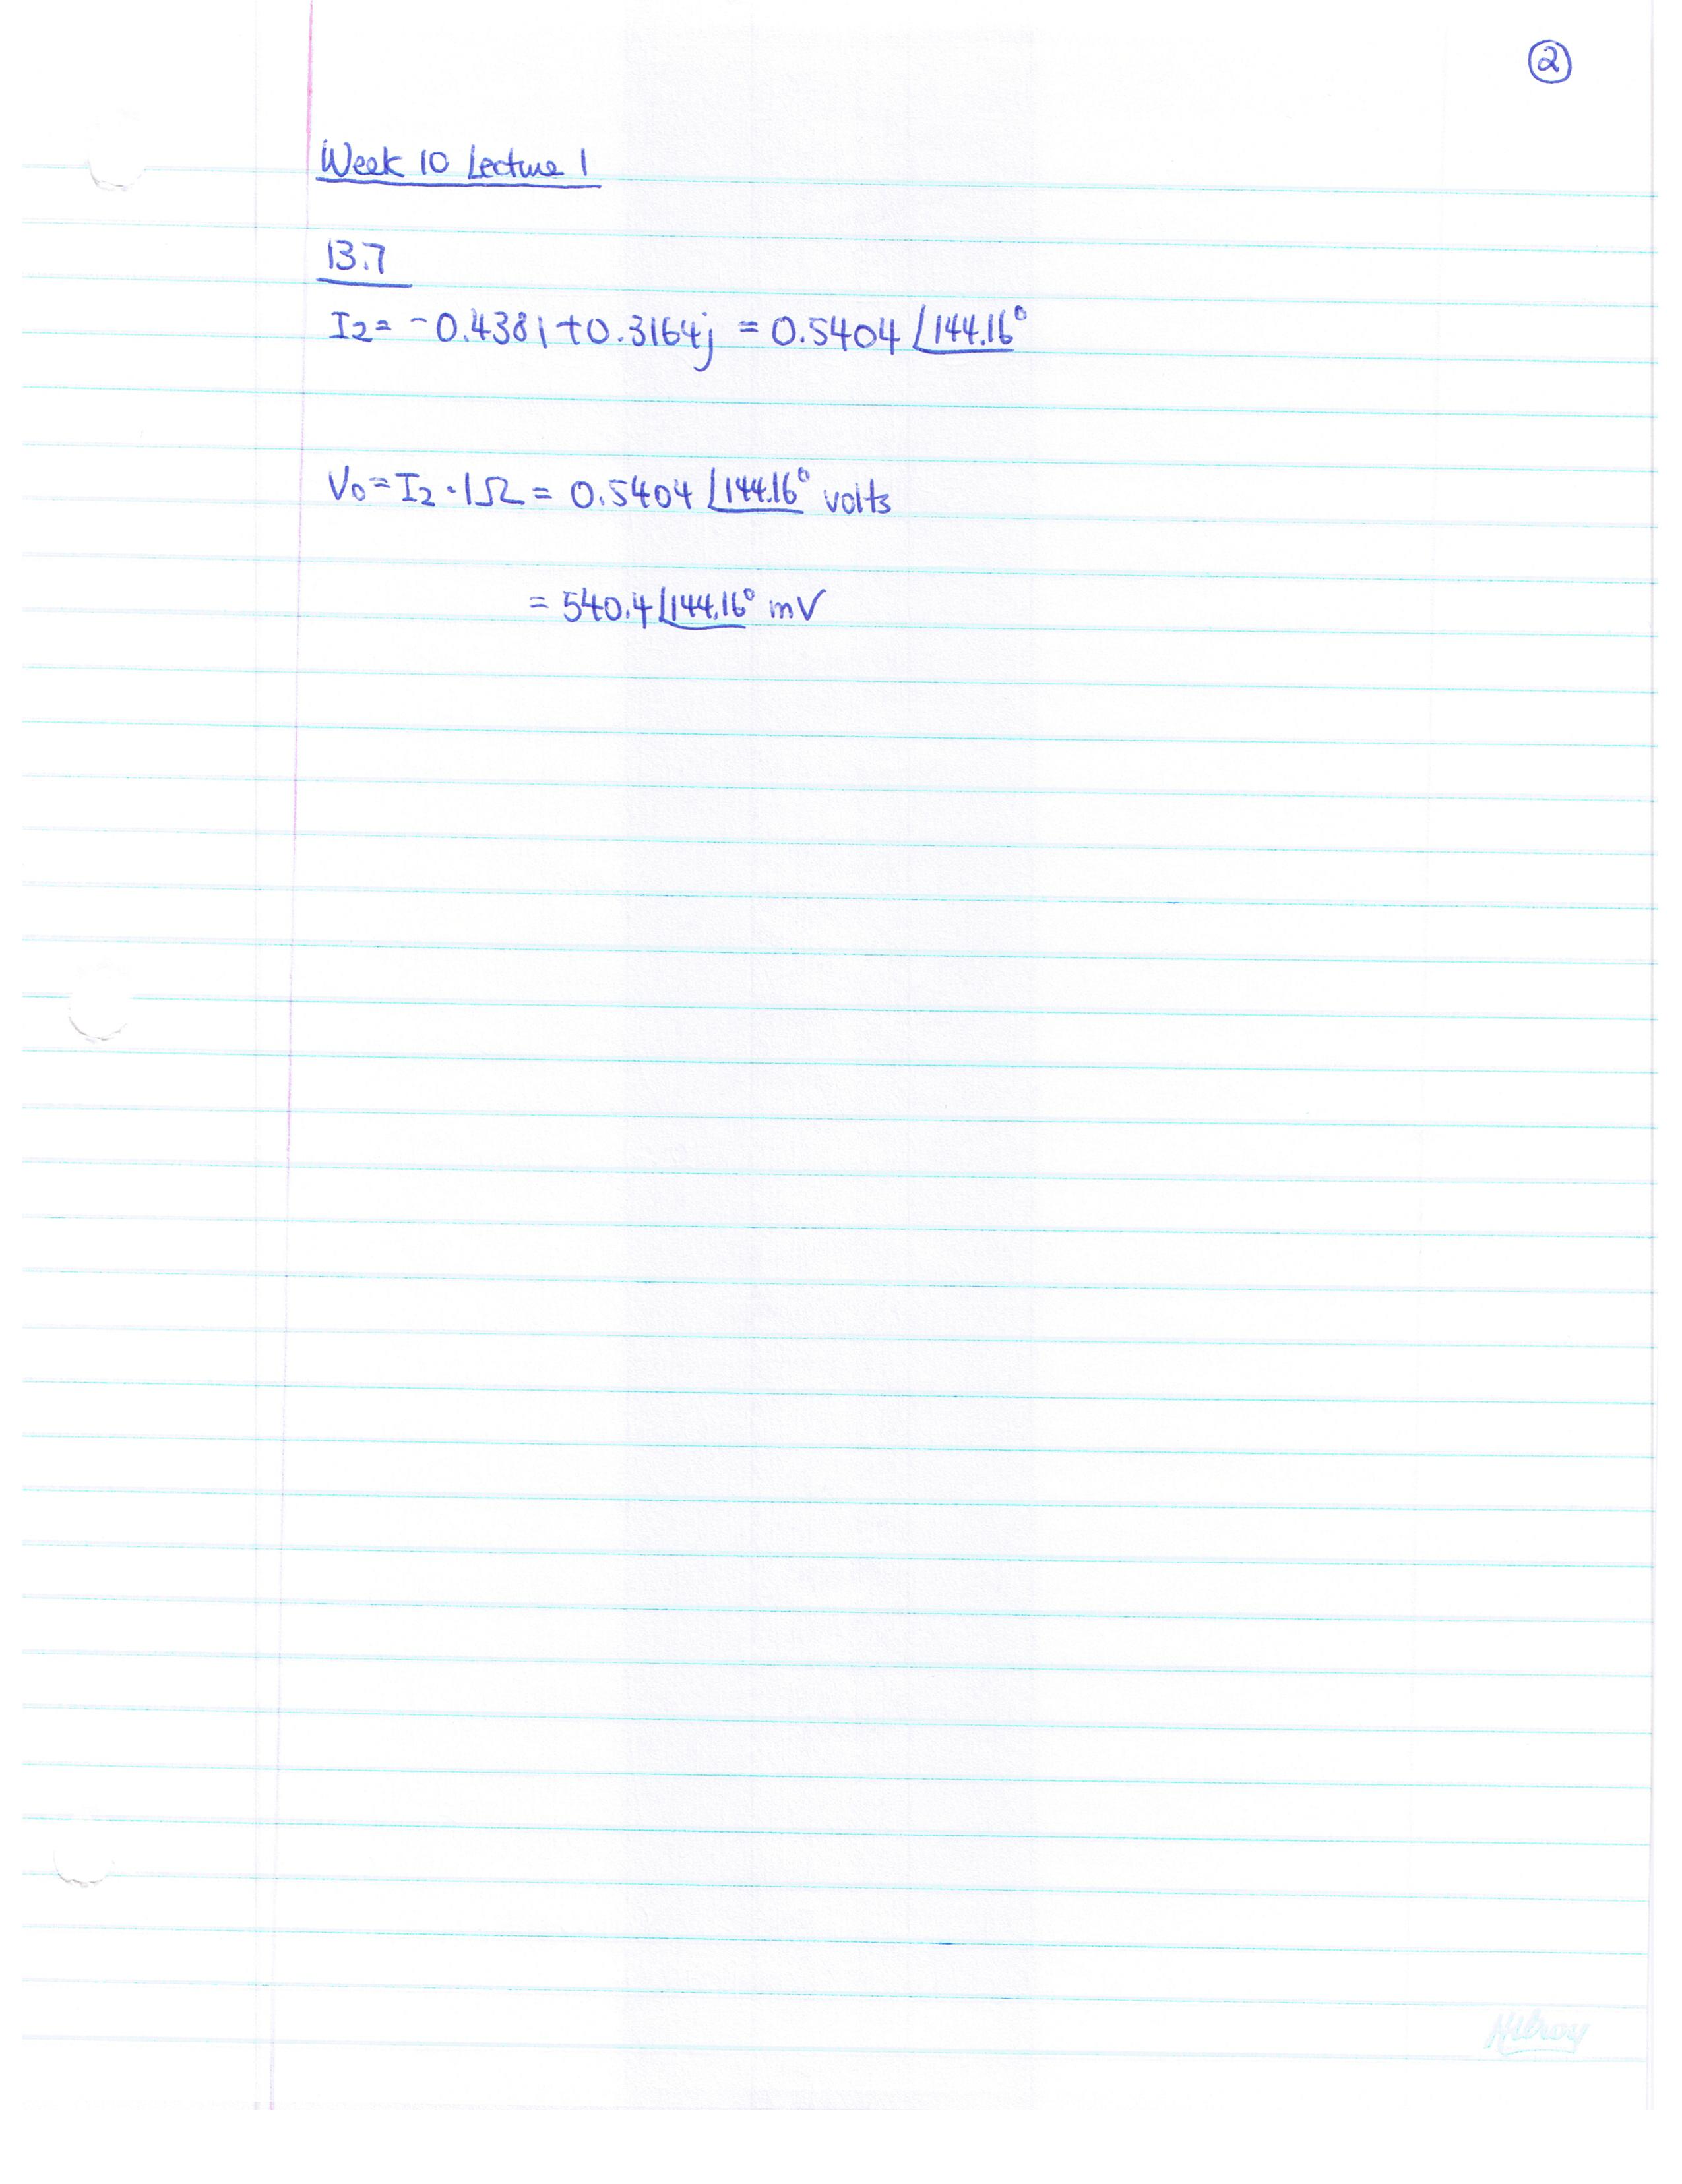 ②
Week 10 Lecture 1
13.7
I2 = -0.4381 + 0.3164j = 0.5404 ∠144.16°
Vo = I2 · 1Ω = 0.5404 ∠144.16° volts
= 540.4 ∠144.16° mV
Hilroy